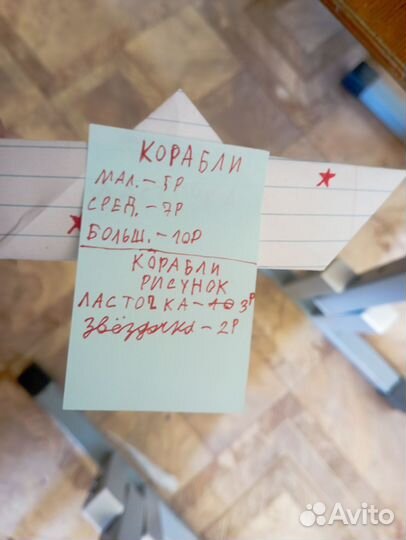 КОРАБЛИ
МАЛ. - 5Р
СРЕД. - 7Р
БОЛЬШ. - 10Р
КОРАБЛИ
РИСУНОК
ЛАСТОЧКА - 10 3Р
Звёздочка - 2Р
Avito